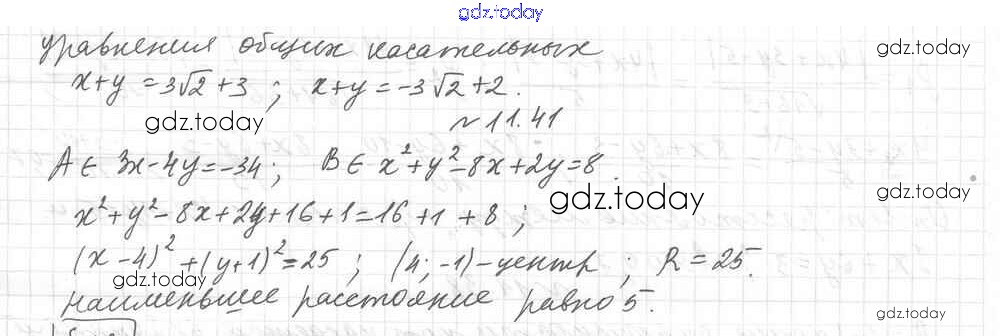 gdz.today
уравнения общих касательных
gdz.today
x+y=3√2+3; x+y=-3√2+2.
gdz.today
№11.41
A∈ 3x-4y=-34; B∈ x²+y²-8x+2y=8.
gdz.today
gdz.today
x²+y²-8x+2y+16+1=16+1+8;
(x-4)²+(y+1)²=25; (4;-1)-центр; R=25.
gdz.today
наименьшее расстояние равно 5.
gdz.today